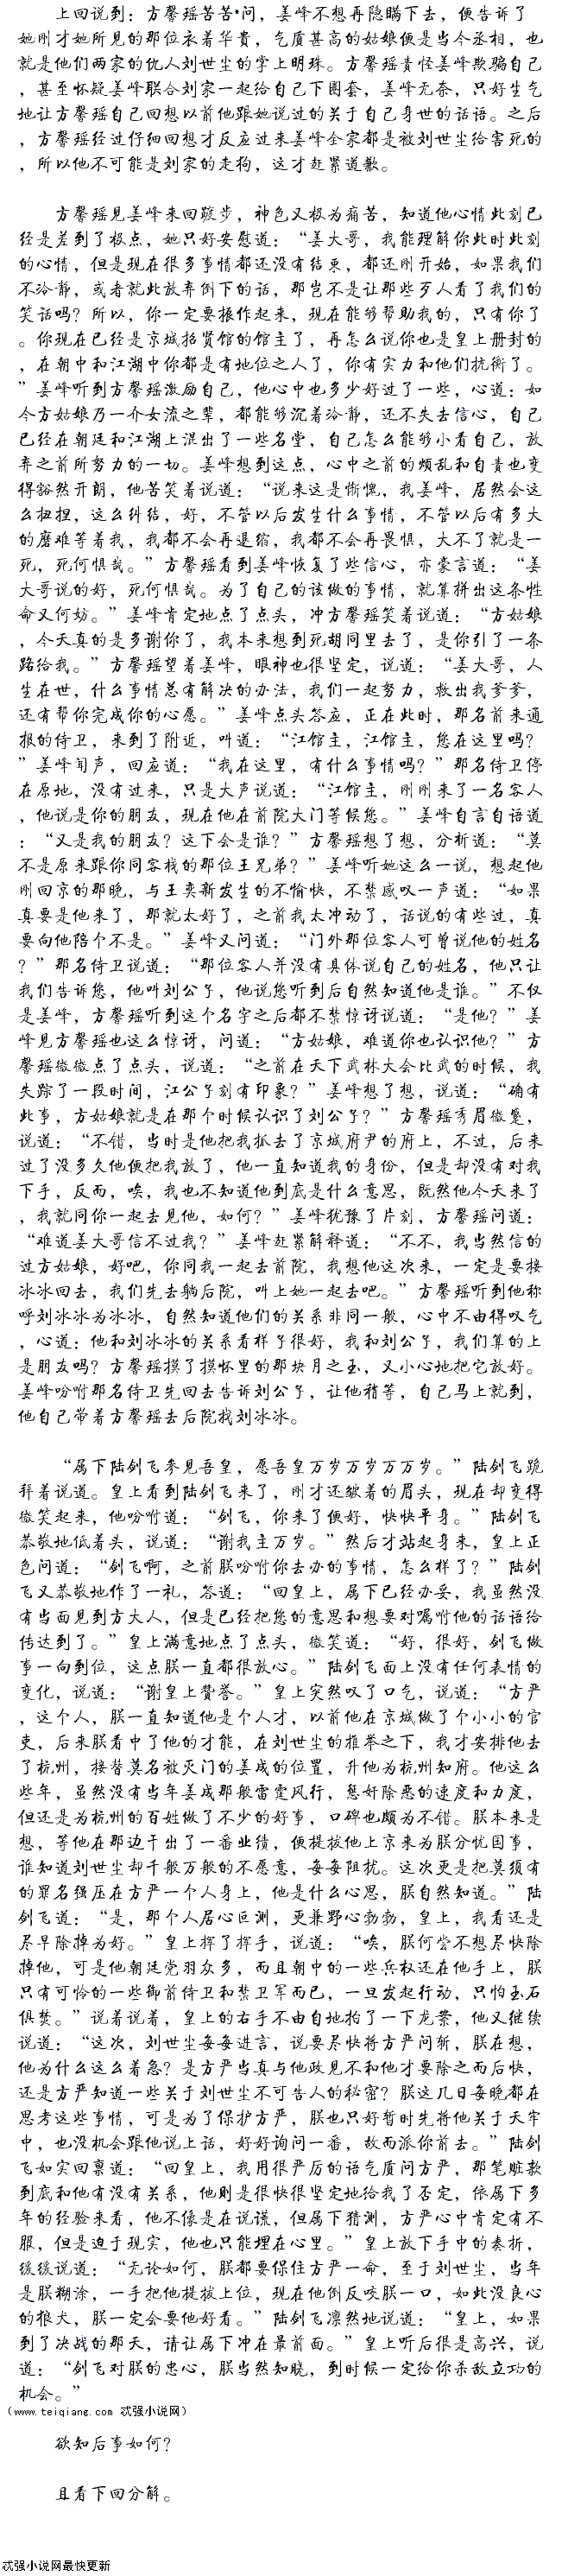 上回说到：方馨瑶苦苦·问，姜峰不想再隐瞒下去，便告诉了
她刚才她所见的那位衣着华贵，气质甚高的姑娘便是当今丞相，也
就是他们两家的仇人刘世尘的掌上明珠。方馨瑶责怪姜峰欺骗自己
，甚至怀疑姜峰联合刘家一起给自己下圈套，姜峰无奈，只好生气
地让方馨瑶自己回想以前他跟她说过的关于自己身世的话语。之后
，方馨瑶经过仔细回想才反应过来姜峰全家都是被刘世尘给害死的
，所以他不可能是刘家的走狗，这才赶紧道歉。
方馨瑶见姜峰来回踱步，神色又极为痛苦，知道他心情此刻已
经是差到了极点，她只好安慰道：“姜大哥，我能理解你此时此刻
的心情，但是现在很多事情都还没有结束，都还刚开始，如果我们
不冷静，或者就此放弃倒下的话，那岂不是让那些歹人看了我们的
笑话吗？所以，你一定要振作起来，现在能够帮助我的，只有你了
。你现在已经是京城招贤馆的馆主了，再怎么说你也是皇上册封的
，在朝中和江湖中你都是有地位之人了，你有实力和他们抗衡了。
”姜峰听到方馨瑶激励自己，他心中也多少好过了一些，心道：如
今方姑娘乃一介女流之辈，都能够沉着冷静，还不失去信心，自己
已经在朝廷和江湖上混出了一些名堂，自己怎么能够小看自己，放
弃之前所努力的一切。姜峰想到这点，心中之前的烦乱和自责也变
得豁然开朗，他苦笑着说道：“说来这是惭愧，我姜峰，居然会这
么扭捏，这么纠结，好，不管以后发生什么事情，不管以后有多大
的磨难等着我，我都不会再退缩，我都不会再畏惧，大不了就是一
死，死何惧哉。”方馨瑶看到姜峰恢复了些信心，亦豪言道：“姜
大哥说的好，死何惧哉。为了自己的该做的事情，就算拼出这条性
命又何妨。”姜峰肯定地点了点头，冲方馨瑶笑着说道：“方姑娘
，今天真的是多谢你了，我本来想到死胡同里去了，是你引了一条
路给我。”方馨瑶望着姜峰，眼神也很坚定，说道：“姜大哥，人
生在世，什么事情总有解决的办法，我们一起努力，救出我爹爹，
还有帮你完成你的心愿。”姜峰点头答应，正在此时，那名前来通
报的侍卫，来到了附近，叫道：“江馆主，江馆主，您在这里吗？
”姜峰闻声，回应道：“我在这里，有什么事情吗？”那名侍卫停
在原地，没有过来，只是大声说道：“江馆主，刚刚来了一名客人
，他说是你的朋友，现在他在前院大门等候您。”姜峰自言自语道
：“又是我的朋友？这下会是谁？”方馨瑶想了想，分析道：“莫
不是原来跟你同客栈的那位王兄弟？”姜峰听她这么一说，想起他
刚回京的那晚，与王奕新发生的不愉快，不禁感叹一声道：“如果
真要是他来了，那就太好了，之前我太冲动了，话说的有些过，真
要向他陪个不是。”姜峰又问道：“门外那位客人可曾说他的姓名
？”那名侍卫说道：“那位客人并没有具体说自己的姓名，他只让
我们告诉您，他叫刘公子，他说您听到后自然知道他是谁。”不仅
是姜峰，方馨瑶听到这个名字之后都不禁惊讶说道：“是他？”姜
峰见方馨瑶也这么惊讶，问道：“方姑娘，难道你也认识他？”方
馨瑶微微点了点头，说道：“之前在天下武林大会比武的时候，我
失踪了一段时间，江公子刻有印象？”姜峰想了想，说道：“确有
此事，方姑娘就是在那个时候认识了刘公子？”方馨瑶秀眉微蹙，
说道：“不错，当时是他把我抓去了京城府尹的府上，不过，后来
过了没多久他便把我放了，他一直知道我的身份，但是却没有对我
下手，反而，唉，我也不知道他到底是什么意思，既然他今天来了
，我就同你一起去见他，如何？”姜峰犹豫了片刻，方馨瑶问道：
“难道姜大哥信不过我？”姜峰赶紧解释道：“不不，我当然信的
过方姑娘，好吧，你同我一起去前院，我想他这次来，一定是要接
冰冰回去，我们先去躺后院，叫上她一起去吧。”方馨瑶听到他称
呼刘冰冰为冰冰，自然知道他们的关系非同一般，心中不由得叹气
，心道：他和刘冰冰的关系看样子很好，我和刘公子，我们算的上
是朋友吗？方馨瑶摸了摸怀里的那块月之玉，又小心地把它放好。
姜峰吩咐那名侍卫先回去告诉刘公子，让他稍等，自己马上就到，
他自己带着方馨瑶去后院找刘冰冰。
“属下陆剑飞参见吾皇，愿吾皇万岁万岁万万岁。”陆剑飞跪
拜着说道。皇上看到陆剑飞来了，刚才还皱着的眉头，现在却变得
微笑起来，他吩咐道：“剑飞，你来了便好，快快平身。”陆剑飞
恭敬地低着头，说道：“谢我主万岁。”然后才站起身来，皇上正
色问道：“剑飞啊，之前朕吩咐你去办的事情，怎么样了？”陆剑
飞又恭敬地作了一礼，答道：“回皇上，属下已经办妥，我虽然没
有当面见到方大人，但是已经把您的意思和想要对嘱咐他的话语给
传达到了。”皇上满意地点了点头，微笑道：“好，很好，剑飞做
事一向到位，这点朕一直都很放心。”陆剑飞面上没有任何表情的
变化，说道：“谢皇上赞誉。”皇上突然叹了口气，说道：“方严
，这个人，朕一直知道他是个人才，以前他在京城做了个小小的官
吏，后来朕看中了他的才能，在刘世尘的推举之下，我才安排他去
了杭州，接替莫名被灭门的姜战的位置，升他为杭州知府。他这么
些年，虽然没有当年姜战那般雷霆风行，惩奸除恶的速度和力度，
但还是为杭州的百姓做了不少的好事，口碑也颇为不错。朕本来是
想，等他在那边干出了一番业绩，便提拔他上京来为朕分忧国事，
谁知道刘世尘却千般万般的不愿意，每每阻扰。这次更是把莫须有
的罪名强压在方严一个人身上，他是什么心思，朕自然知道。”陆
剑飞道：“是，那个人居心叵测，更兼野心勃勃，皇上，我看还是
尽早除掉为好。”皇上挥了挥手，说道：“唉，朕何尝不想尽快除
掉他，可是他朝廷党羽众多，而且朝中的一些兵权还在他手上，朕
只有可怜的一些御前侍卫和禁卫军而已，一旦发起行动，只怕玉石
俱焚。”说着说着，皇上的右手不由自地拍了一下龙案，他又继续
说道：“这次，刘世尘每每进言，说要尽快将方严问斩，朕在想，
他为什么这么着急？是方严当真与他政见不和他才要除之而后快，
还是方严知道一些关于刘世尘不可告人的秘密？朕这几日每晚都在
思考这些事情，可是为了保护方严，朕也只好暂时先将他关于天牢
中，也没机会跟他说上话，好好询问一番，故而派你前去。”陆剑
飞如实回禀道：“回皇上，我用很严厉的语气质问方严，那笔赃款
到底和他有没有关系，他则是很快很坚定地给我了否定，依属下多
年的经验来看，他不像是在说谎，但属下猜测，方严心中肯定有不
服，但是迫于现实，他也只能埋在心里。”皇上放下手中的奏折，
缓缓说道：“无论如何，朕都要保住方严一命，至于刘世尘，当年
是朕糊涂，一手把他提拔上位，现在他倒反咬朕一口，如此没良心
的狼犬，朕一定会要他好看。”陆剑飞凛然地说道：“皇上，如果
到了决战的那天，请让属下冲在最前面。”皇上听后很是高兴，说
道：“剑飞对朕的忠心，朕当然知晓，到时候一定给你杀敌立功的
机会。”
（www.teiqiang.com 忒强小说网）
欲知后事如何？
且看下回分解。
忒强小说网最快更新